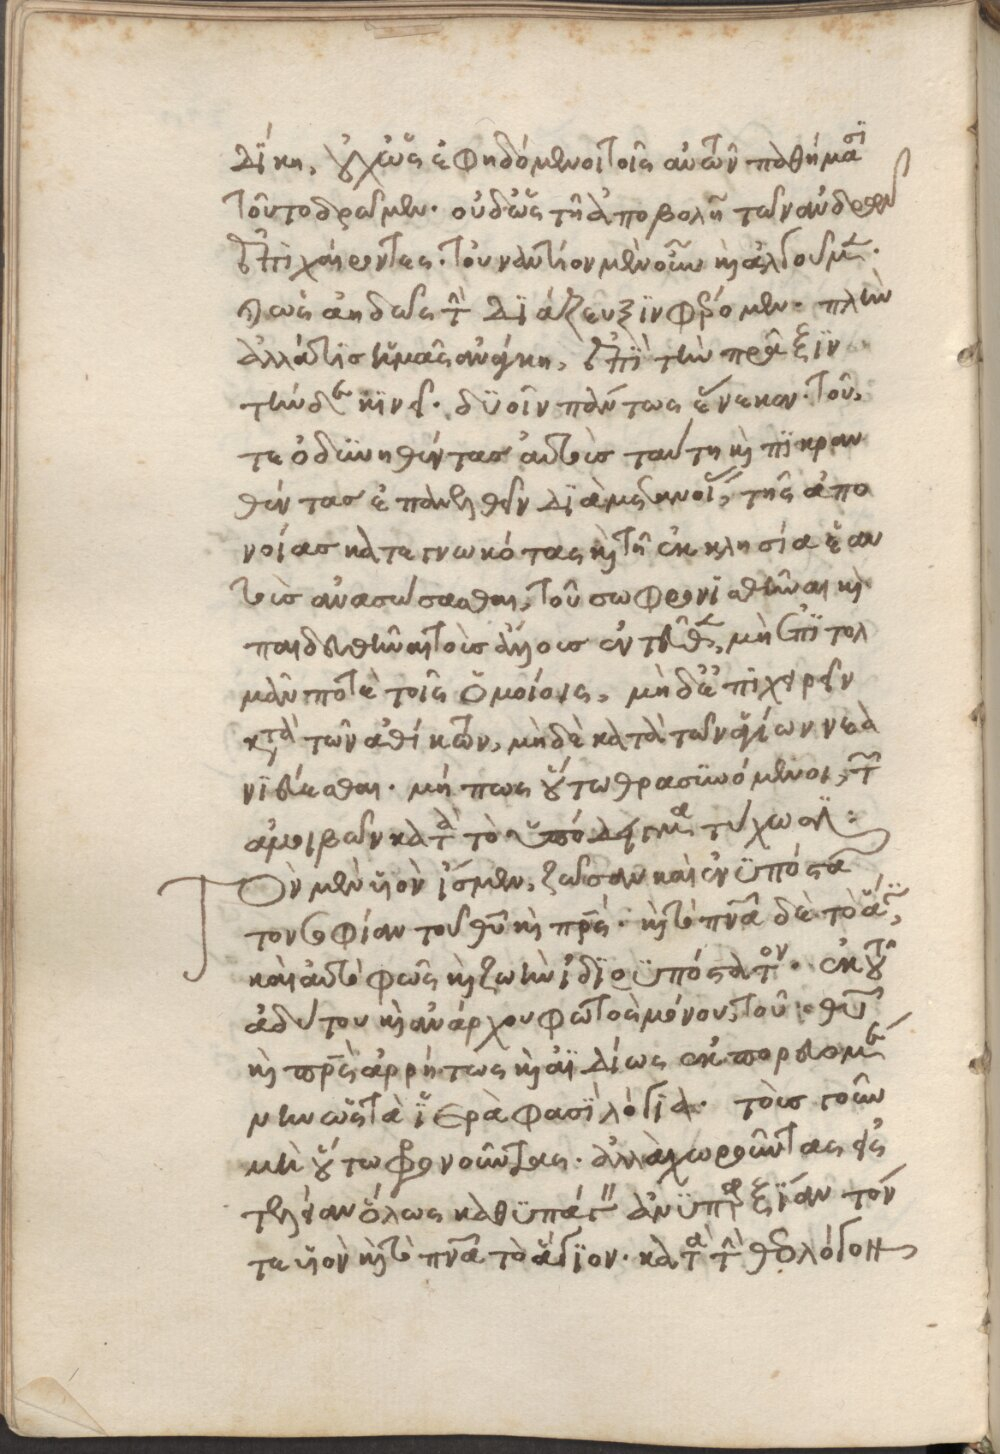 δίκη, οὐχ ὡς ἐφηδόμενοι τοῖς αὐτῶν παθήμασι
τοῦτο δρῶμεν. οὐδ' ὡς τῇ ἀποβολῇ τῶν ἀνδρῶν
ἐπιχαίροντες. τουναντίον μὲν οὖν καὶ ἀλγοῦμεν.
καὶ ἀηδῶς τὴν διάζευξιν φέρομεν. πλὴν
ἀλλά τις ἡμᾶς ἀνάγκη, ἐπὶ τὴν πρᾶξιν
τήνδε κινεῖ. δυοῖν πάντως ἕνεκεν. τοῦ,
τε ὀδυνηθέντας αὐτοὺς ταύτῃ καὶ πικραν
θέντας ἐπανελθεῖν διὰ μετανοίας, τῆς ἀπο
νοίας κατεγνωκότας καὶ τῇ ἐκκλησίᾳ ἑαυ
τοὺς ἀνασώσασθαι, τοῦ σωφρονισθῆναι καὶ
παιδευθῆναι τοὺς ἄλλους ἐντεῦθεν, μὴ ἐπιτολ
μᾶν ποτὲ τοῖς ὁμοίοις, μηδ' ἐπιχειρεῖν
κατὰ τῶν ἀθίκτων, μηδὲ κατὰ τῶν ἁγίων νεα
νιεύεσθαι. μή πως οὕτω θρασυνόμενοι, τῶν
ἀμοιβῶν κατὰ τὸ ὑπόδειγμα τύχωσι:
Τὸν μὲν υἱὸν ἴσμεν, ζῶσαν καὶ ἐνυπόστα
τον σοφίαν τοῦ θυ καὶ πρς. καὶ τὸ πνα δὲ τὸ ἅγιον,
καὶ αὐτὸ φῶς καὶ ζωὴν ἰδιοϋπόστατον. ἐκ τοῦ
ἀδύτου καὶ ἀνάρχου φωτὸς μόνου, τοῦ θυ
καὶ πρς ἀρρήτως καὶ ἀϊδίως ἐκπορευομέ
νην ὡς τὰ ἱερὰ φασὶ λόγια. τοὺς γοῦν
μὴ οὕτω φρονοῦντας. ἀλλὰ χωροῦντας εἰς
τελείαν ὅλως καθυπάρξεως ἀνυπαρξίαν τόν
τε υἱὸν καὶ τὸ πνα τὸ ἅγιον. κατὰ τὴν θεολόγον